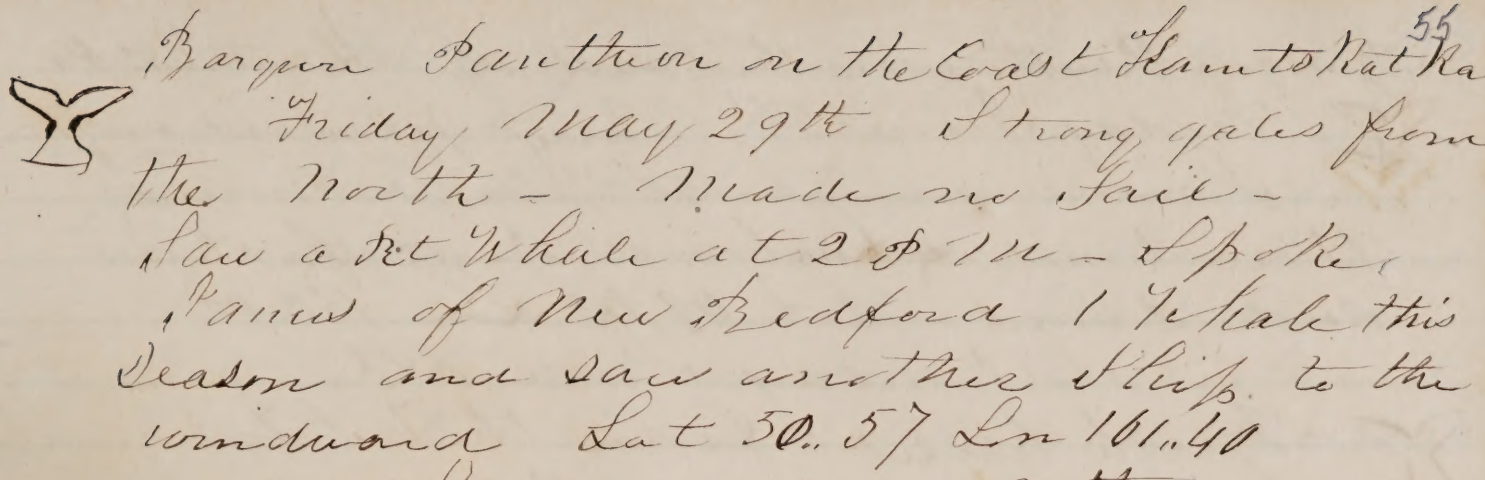 55
Barque Pantheon on the Coast Kamtskatka
Friday May 29th Strong gales from
the North - Made no Sail -
Saw a Rt Whale at 2 P M - Spoke
Janus of New Bedford 1 Whale this
Season and saw another Ship to the
windward Lat 50..57 Lon 161..40